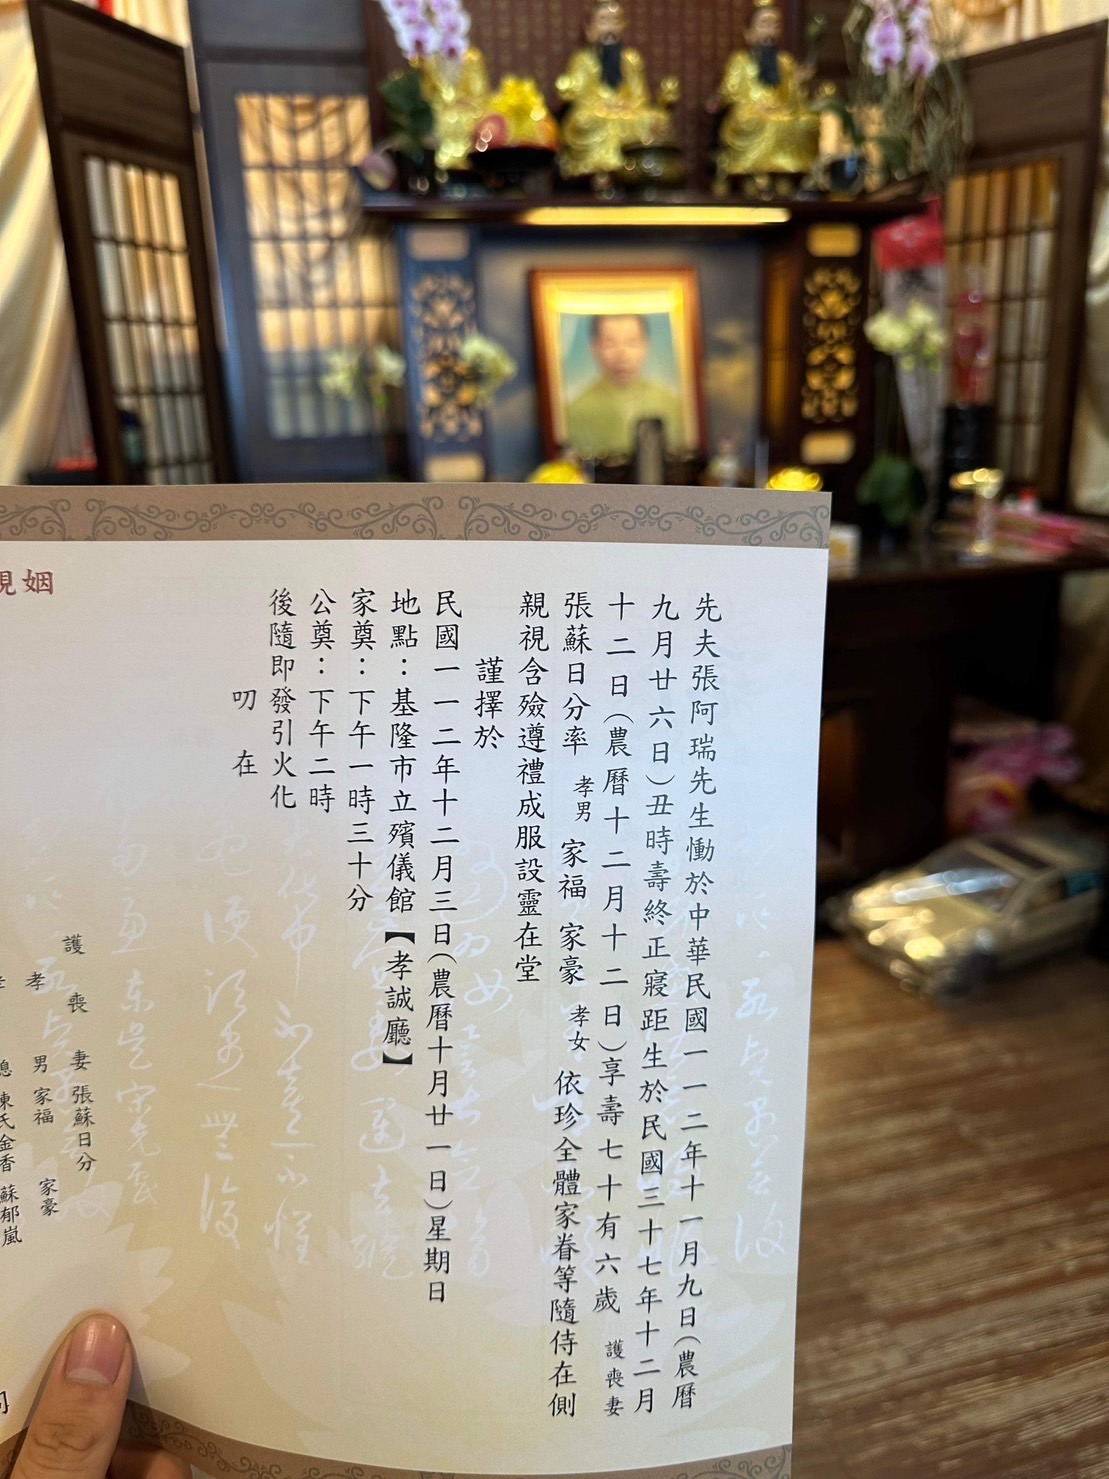 先夫張阿瑞先生慟於中華民國一一二年十一月九日(農曆
九月廿六日)丑時壽終正寢距生於民國三十七年十二月
十二日(農曆十二月十二日)享壽七十有六歲 護喪妻
張蘇日分率 孝男 家福 家豪 孝女 依珍全體家眷等隨侍在側
親視含殮遵禮成服設靈在堂
謹擇於
民國一一二年十二月三日(農曆十月廿一日)星期日
地點：基隆市立殯儀館【孝誠廳】
家奠：下午一時三十分
公奠：下午二時
後隨即發引火化
叨 在
姻
護喪妻 張蘇日分
孝男 家福 家豪
陳氏金香 蘇郁嵐